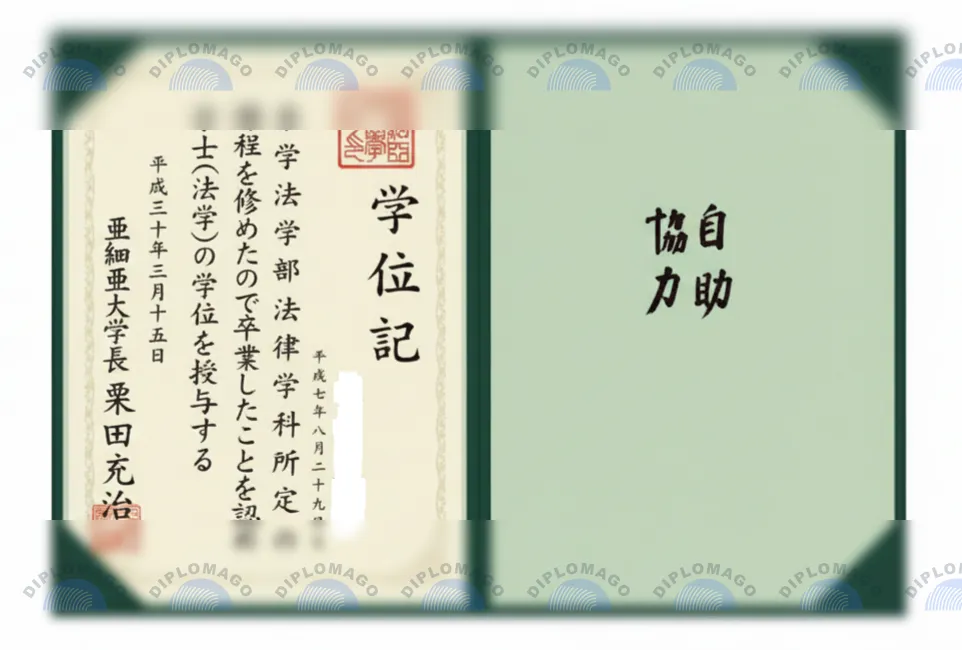 DIPLOMAGO DIPLOMAGO DIPLOMAGO DIPLOMAGO DIPLOMAGO DIPLOMAGO DIPLOMAGO DIPLO
自助
協力
学位記
平成七年八月二十九日
学法学部法律学科所定
程を修めたので卒業したことを認
士(法学)の学位を授与する
平成三十年三月十五日
亜細亜大学長 栗田充治
DIPLOMAGO DIPLOMAGO DIPLOMAGO DIPLOMAGO DIPLOMAGO DIPLOMAGO DIPLOMAGO DIPLO